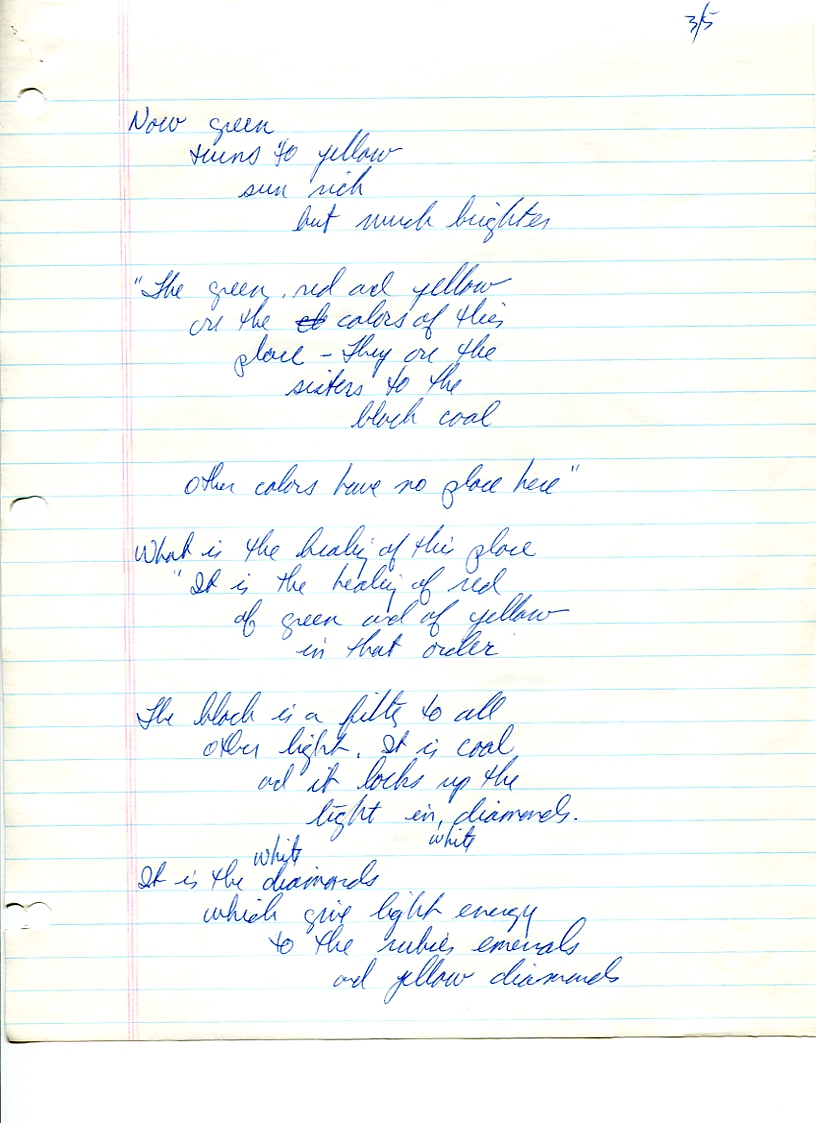 3/5
Now green
turns to yellow
sun rich
but much brighter
"The green, red and yellow
are the colors of this
place - They are the
sisters to the
black coal
Other colors have no place here"
What is the healing of this place
"It is the healing of red
of green and of yellow
in that order
The black is a filter to all
other light. It is coal
and it locks up the
light in, diamonds.
white
white
It is the diamonds
which give light energy
to the rubies emeralds
and yellow diamonds